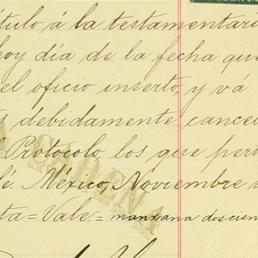 título á la testamentari
hoy día de la fecha qu
el oficio inserto, y vá
s debidamente cance
Protocolo los que per
fé. México, Noviembre
ta = Vale. = manzana doscien